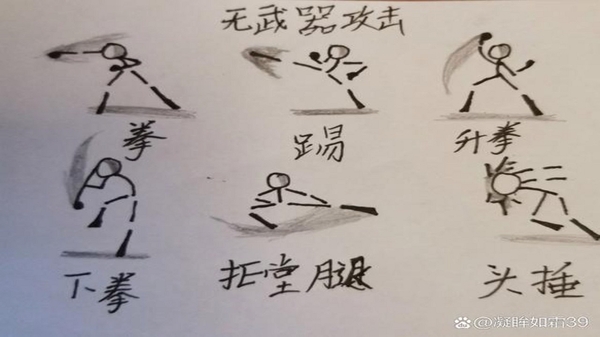 无武器攻击
拳 踢 升拳
下拳 扫堂腿 头捶
@凝眸如霜39